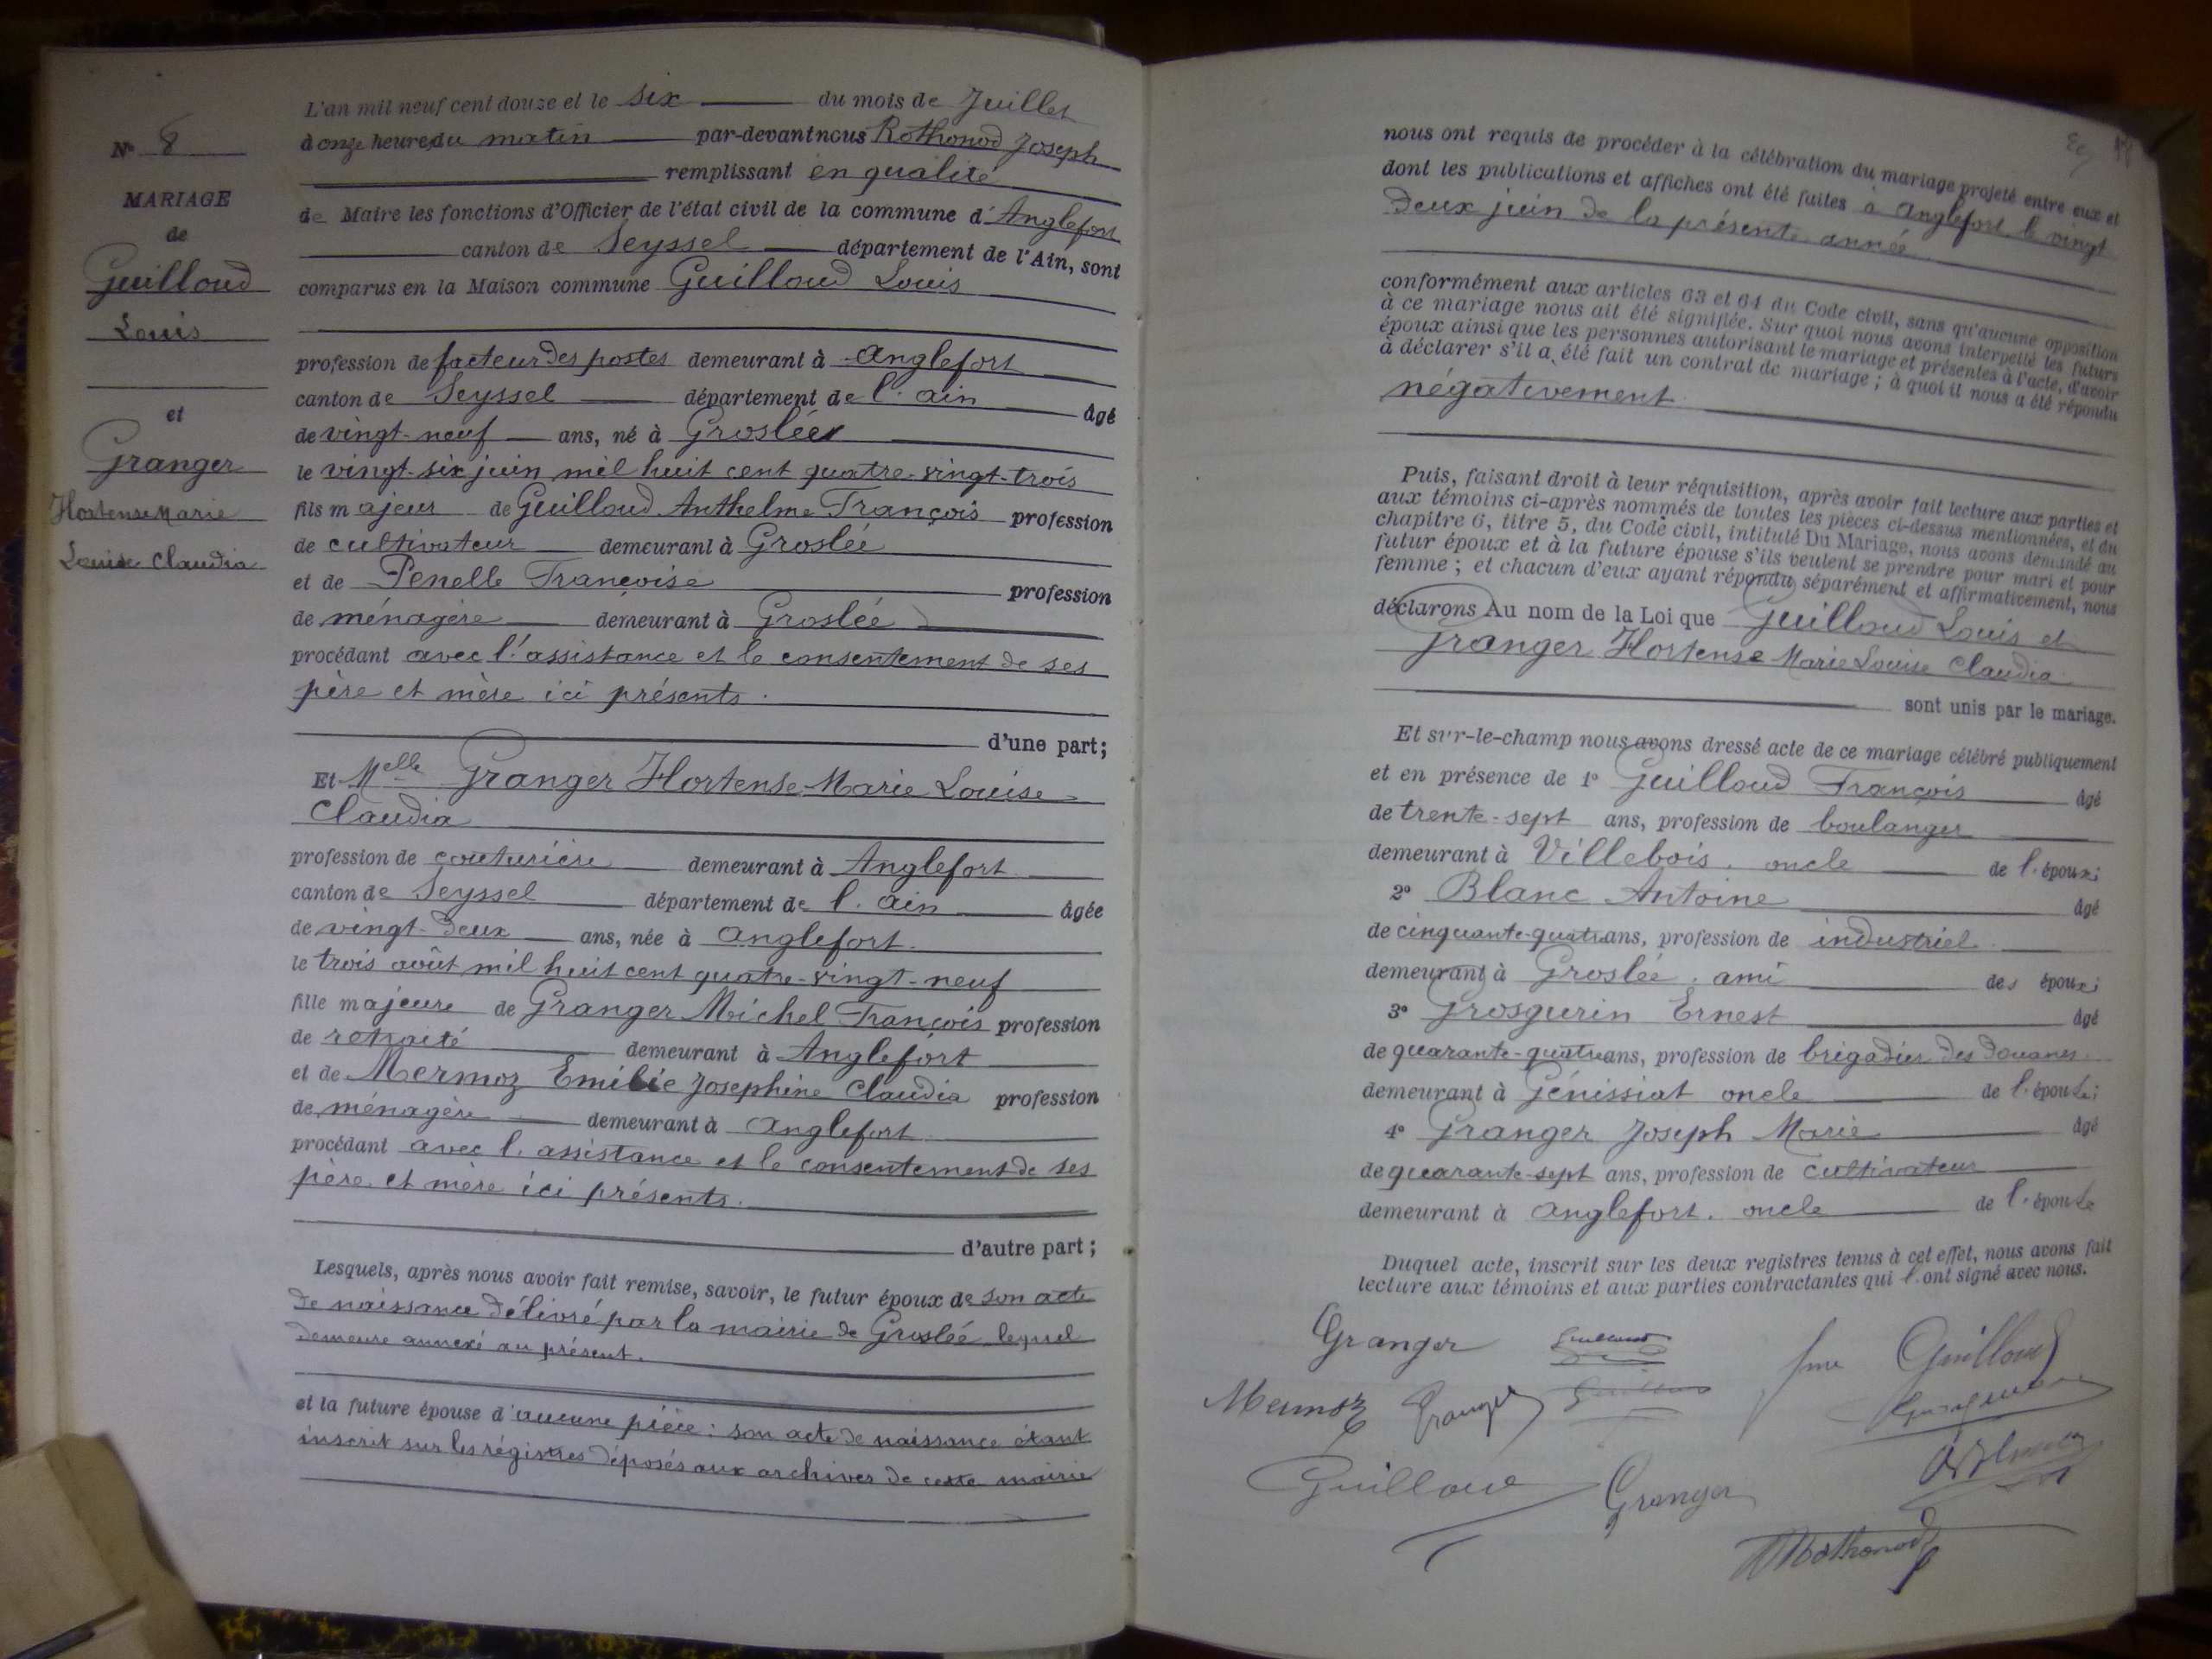 N° 8
MARIAGE
de
Guilloud
Louis
et
Granger
Hortense Marie
Louise Claudia
L'an mil neuf cent douze et le six du mois de Juillet
à onze heures du matin par-devant nous Rothonod Joseph
remplissant en qualité
de Maire les fonctions d'Officier de l'état civil de la commune d'Anglefort
canton de Seyssel département de l'Ain, sont
comparus en la Maison commune Guilloud Louis
profession de facteur des postes demeurant à Anglefort
canton de Seyssel département de l'ain âgé
de vingt-neuf ans, né à Groslée
le vingt-six juin mil huit cent quatre-vingt-trois
fils majeur de Guilloud Anthelme François profession
de cultivateur demeurant à Groslée
et de Penelle Françoise profession
de ménagère demeurant à Groslée
procédant avec l'assistance et le consentement de ses
père et mère ici présents.
d'une part;
Et Melle Granger Hortense Marie Louise
Claudia
profession de couturière demeurant à Anglefort
canton de Seyssel département de l'ain âgée
de vingt-deux ans, née à Anglefort.
le trois août mil huit cent quatre-vingt-neuf
fille majeure de Granger Michel François profession
de retraité demeurant à Anglefort
et de Mermoz Emilie Josephine Claudia profession
de ménagère demeurant à Anglefort
procédant avec l'assistance et le consentement de ses
père et mère ici présents.
d'autre part;
Lesquels, après nous avoir fait remise, savoir, le futur époux de son acte
de naissance délivré par la mairie de Groslée lequel
demeure annexé au présent.
et la future épouse d'aucune pièce: son acte de naissance étant
inscrit sur les régistres déposés aux archives de cette mairie
nous ont requis de procéder à la célébration du mariage projeté entre eux et
dont les publications et affiches ont été faites à Anglefort le vingt
deux juin de la présente année
conformément aux articles 63 et 64 du Code civil, sans qu'aucune opposition
à ce mariage nous ait été signifiée. Sur quoi nous avons interpellé les futurs
époux ainsi que les personnes autorisant le mariage et présentes à l'acte, d'avoir
à déclarer s'il a été fait un contrat de mariage; à quoi il nous a été répondu
négativement.
Puis, faisant droit à leur réquisition, après avoir fait lecture aux parties et
aux témoins ci-après nommés de toutes les pièces ci-dessus mentionnées, et du
chapitre 6, titre 5, du Code civil, intitulé Du Mariage, nous avons demandé au
futur époux et à la future épouse s'ils veulent se prendre pour mari et pour
femme; et chacun d'eux ayant répondu séparément et affirmativement, nous
déclarons Au nom de la Loi que Guilloud Louis et
Granger Hortense Marie Louise Claudia
sont unis par le mariage.
Et sur-le-champ nous avons dressé acte de ce mariage célébré publiquement
et en présence de 1° Guilloud François âgé
de trente-sept ans, profession de boulanger
demeurant à Villebois. oncle de l'époux;
2° Blanc Antoine âgé
de cinquante-quatre ans, profession de industriel
demeurant à Groslée. ami des époux;
3° Grosgurin Ernest âgé
de quarante-quatre ans, profession de brigadier des Douanes
demeurant à Génissiat oncle de l'épouse;
4° Granger Joseph Marie âgé
de quarante-sept ans, profession de cultivateur
demeurant à Anglefort. oncle de l'épouse
Duquel acte, inscrit sur les deux registres tenus à cet effet, nous avons fait
lecture aux témoins et aux parties contractantes qui l'ont signé avec nous.
Granger Guilloud fme Guilloud
Mermoz Granger
Guilloud Granger
Rothonod